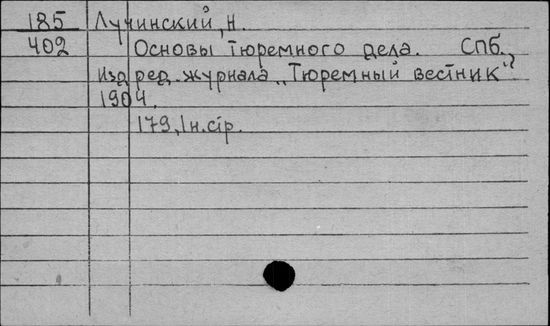 185 Лучинский, Н.
402 Основы тюремного дела. СПб.,
Изд. ред. журнала „Тюремный вестник",
1904.
179, 1 н. стр.